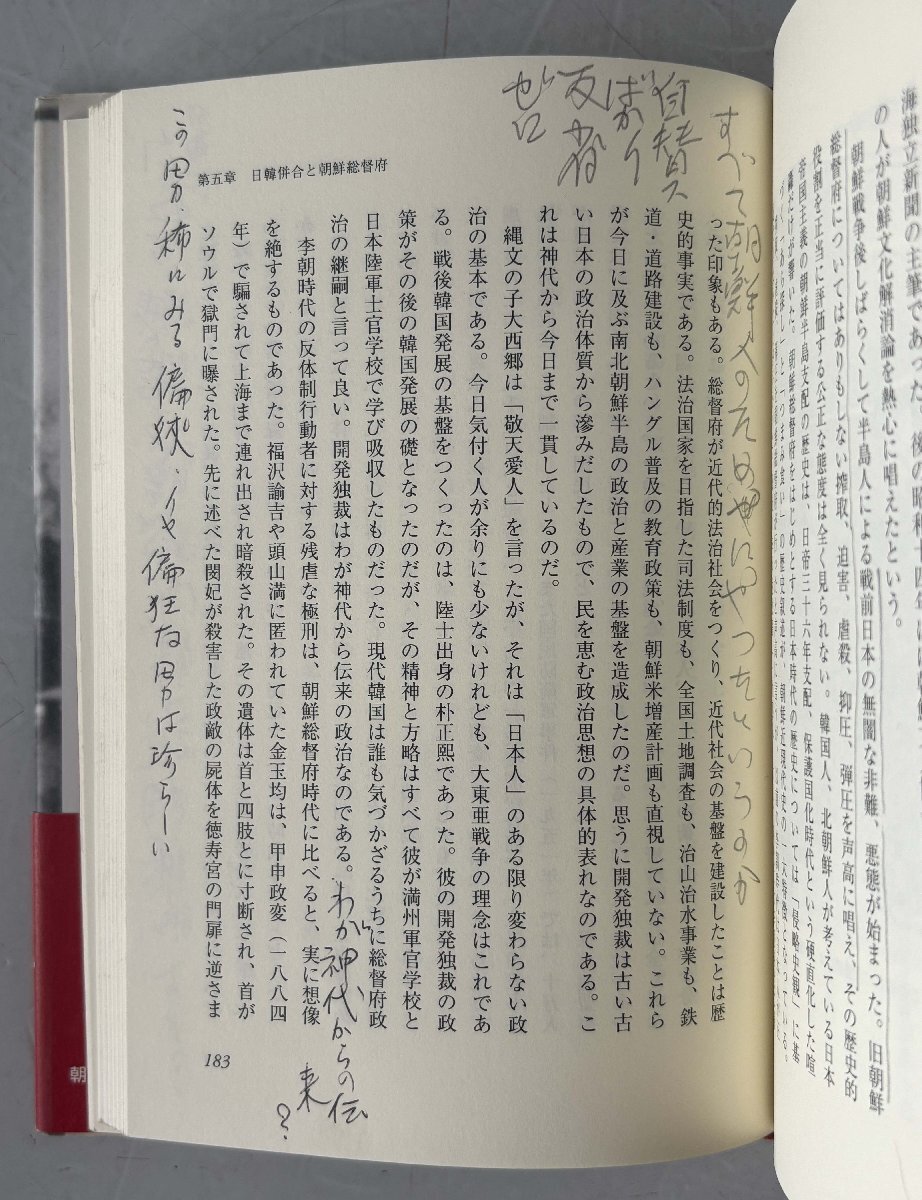 海独立新聞の主筆
の人が朝鮮文化解消論を熱心に唱えたという。
朝鮮戦争後しばらくして半島人による戦前日本の無闇な非難、悪態が始まった。旧朝鮮
総督府についてはありもしない搾取、迫害、虐殺、抑圧、弾圧を声高に唱え、その歴史的
役割を正当に評価する公正な態度は全く見られない。韓国人、北朝鮮人が考えている日本
帝国主義の朝鮮半島支配の歴史は、日帝三十六年支配、保護国化時代という硬直化した喧
すべて朝鮮人のためにやったというのか
自賛
ばかり
反省
ゼロ
第五章 日韓併合と朝鮮総督府
った印象もある。総督府が近代的法治社会をつくり、近代社会の基盤を建設したことは歴
史的事実である。法治国家を目指した司法制度も、全国土地調査も、治山治水事業も、鉄
道・道路建設も、ハングル普及の教育政策も、朝鮮米増産計画も直視していない。これら
が今日に及ぶ南北朝鮮半島の政治と産業の基盤を造成したのだ。思うに開発独裁は古い古
い日本の政治体質から滲みだしたもので、民を恵む政治思想の具体的表れなのである。こ
れは神代から今日まで一貫しているのだ。
縄文の子大西郷は「敬天愛人」を言ったが、それは「日本人」のある限り変わらない政
治の基本である。今日気付く人が余りにも少ないけれども、大東亜戦争の理念はこれであ
る。戦後韓国発展の基盤をつくったのは、陸士出身の朴正熙であった。彼の開発独裁の政
策がその後の韓国発展の礎となったのだが、その精神と方略はすべて彼が満州軍官学校と
日本陸軍士官学校で学び吸収したものだった。現代韓国は誰も気づかざるうちに総督府政
治の継嗣と言って良い。開発独裁はわが神代から伝来の政治なのである。
わが神代からの伝
来?
李朝時代の反体制行動者に対する残虐な極刑は、朝鮮総督府時代に比べると、実に想像
を絶するものであった。福沢諭吉や頭山満に匿われていた金玉均は、甲申政変(一八八四
年)で騙されて上海まで連れ出され暗殺された。その遺体は首と四肢とに寸断され、首が
ソウルで獄門に曝された。先に述べた閔妃が殺害した政敵の屍体を徳寿宮の門扉に逆さま
この男、稀にみる偏狭、イヤ偏狂な男は珍らしい
183
朝